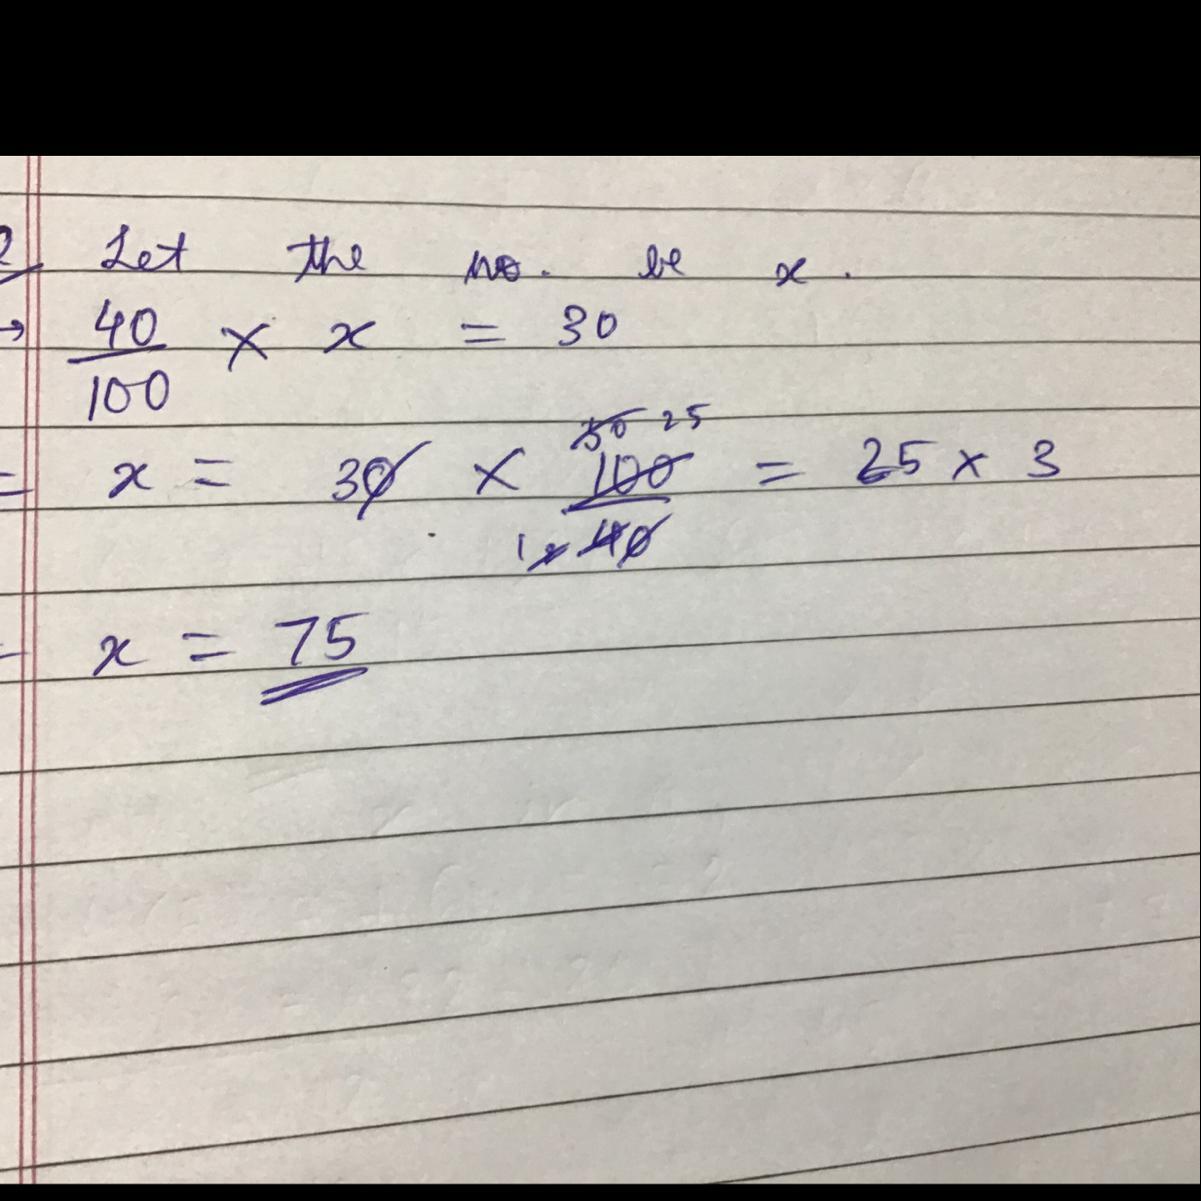 2 Let the no. be x.
→ 40/100 × x = 30
= x = 30 × 100/40 50 25 1 2 = 25 × 3
= x = 75